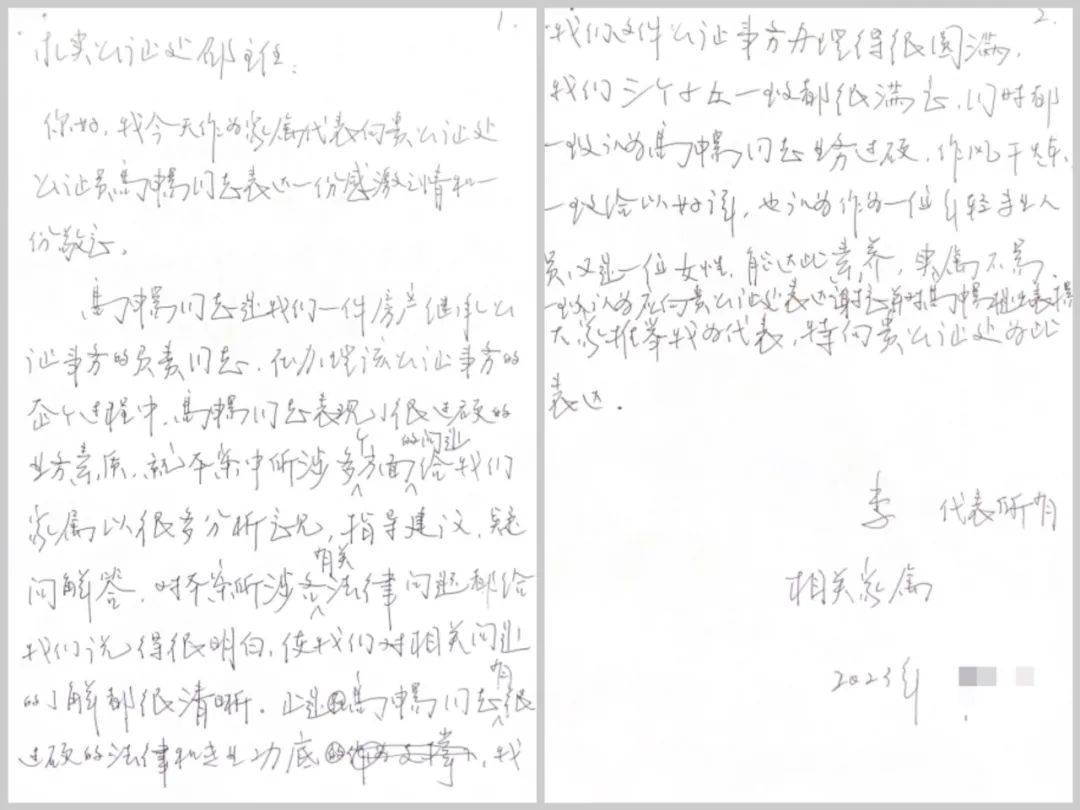 1.
公证处邵主任：
你好，我今天作为家属代表向贵公证处
公证员馬申楊同志表达一份感激之情和一
份敬意。
馬申楊同志是我们一件房产继承公
证事务的负责同志，在办理该公证事务的
全个过程中，馬楊同志表现了很过硬的
业务素质，就本案中所涉多个方面的问题给我们
家属以很多分析意见，指导建议，疑
问解答，对本案所涉各有关法律问题都给
我们说得很明白，使我们对相关问题
的了解都很清晰。正是馬申楊同志有很
过硬的法律和专业功底，我
2.
我们这件公证事务办理得很圆满，
我们三个子女一致都很满意，同时都
一致认为馬申楊同志业务过硬，作风干练，
一致给以好评，也认为作为一位年轻专业人
员又是一位女性，能达此素养，实属不易，
一致认为应向贵公证处表达谢意并对馬申楊提出表揚
大家推举我为代表，特向贵公证处为此
表达。
李 代表所有
相关家属
2023年